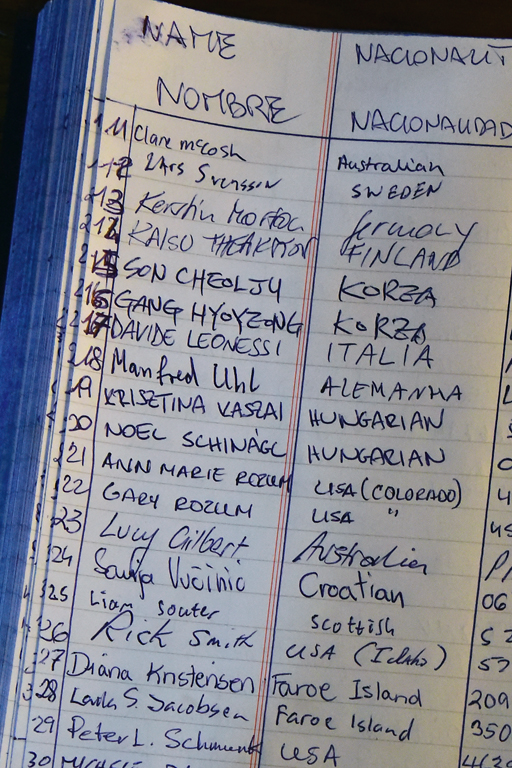 NAME NACIONALIT
NOMBRE NACIONALIDAD
11 Clare McCosh Australian
112 Lars Svensson SWEDEN
213 Kerstin Germany
KAISU FINLAND
215 SON CHEOLJU KOREA
216 GANG HYOYZONG KOREA
217 DAVIDE LEONESSI ITALIA
218 Manfred Uhl ALEMANHA
19 KRISZTINA VASZAI HUNGARIAN
20 NOEL SCHINÁGL HUNGARIAN
21 ANN MARIE ROZUM USA (COLORADO) 4
22 GARY ROZUM USA "
23 Lucy Gilbert Australia
24 Sanja Vučinić Croatian 06
325 Liam Souter Scottish
326 Rick Smith USA (Idaho)
327 Diana Kristensen Faroe Island 209
328 Laila S. Jacobsen Faroe Island 350
29 Peter L. USA
30